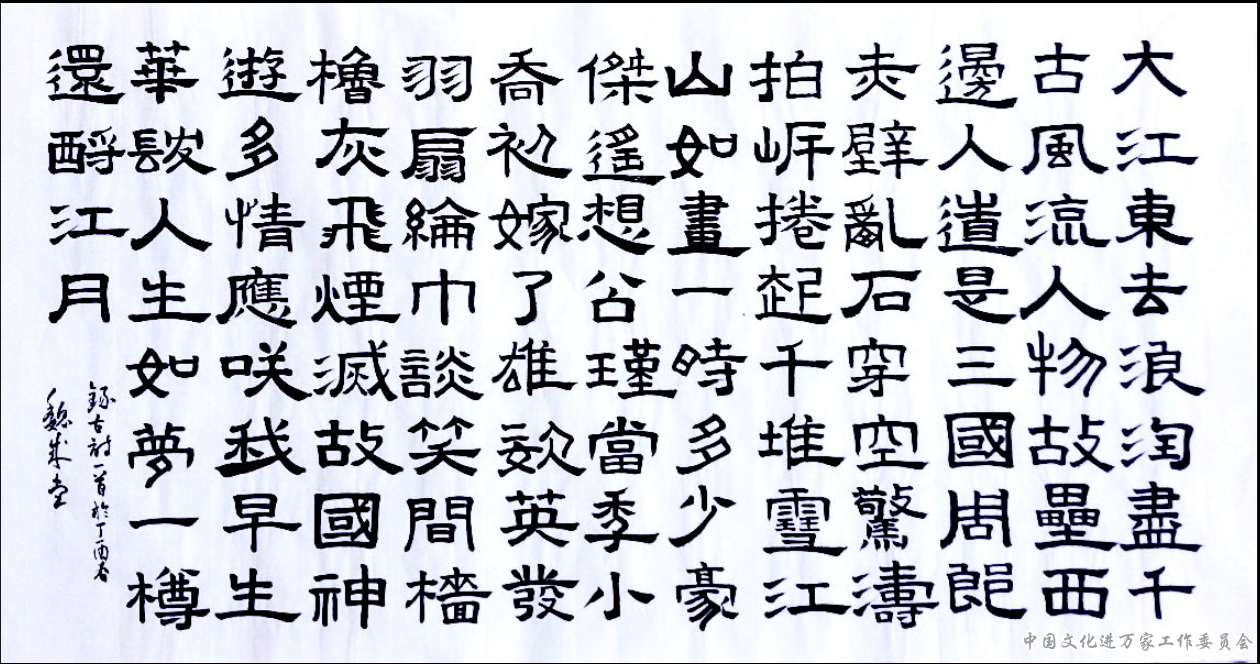 大江東去浪淘盡千
古風流人物故壘西
邊人道是三國周郎
赤壁亂石穿空驚濤
拍岸捲起千堆雪江
山如畫一時多少豪
傑遙想公瑾當秊小
喬初嫁了雄姿英發
羽扇綸巾談笑間檣
櫓灰飛煙滅故國神
遊多情應咲我早生
華髮人生如夢一樽
還酹江月
錄古詩一首於丁酉春
中国文化进万家工作委员会